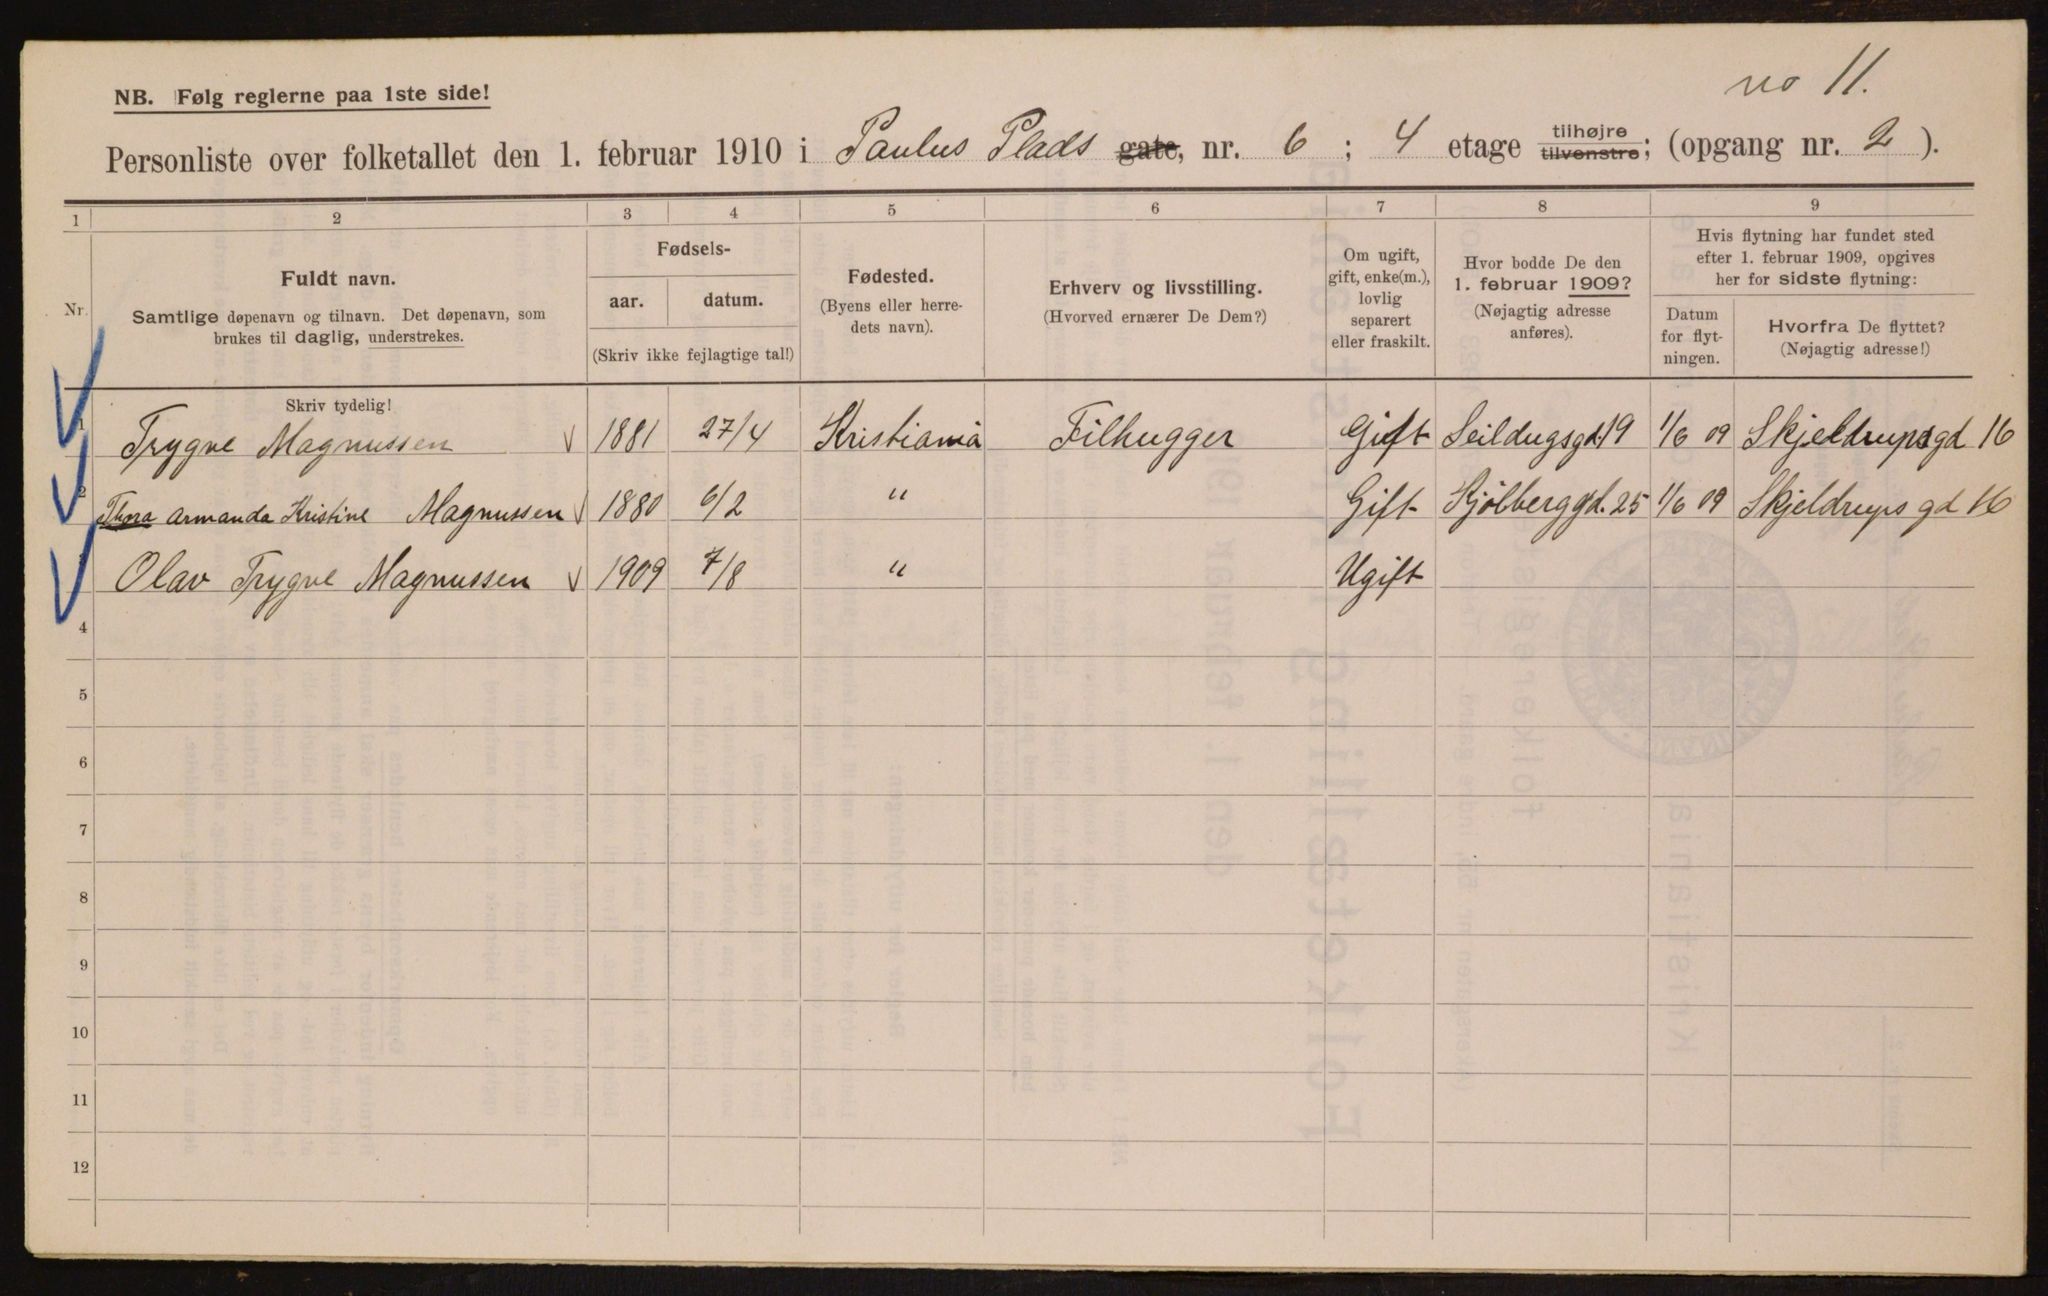 no 11.
NB. Følg reglerne paa 1ste side!
Personliste over folketallet den 1. februar 1910 i Paulus Plads gate, nr. 6 ; 4 etage tilhøjre tilvenstre; (opgang nr. 2 ).
1 2 3 4 5 6 7 8 9
Nr.
Fuldt navn.
Samtlige døpenavn og tilnavn. Det døpenavn, som
brukes til daglig, understrekes.
Fødsels-
aar. datum.
(Skriv ikke fejlagtige tal!)
Fødested.
(Byens eller herre-
dets navn).
Erhverv og livsstilling.
(Hvorved ernærer De Dem?)
Om ugift,
gift, enke(m.),
lovlig
separert
eller fraskilt.
Hvor bodde De den
1. februar 1909?
(Nøjagtig adresse
anføres).
Hvis flytning har fundet sted
efter 1. februar 1909, opgives
her for sidste flytning:
Datum
for flyt-
ningen.
Hvorfra De flyttet?
(Nøjagtig adresse!)
Skriv tydelig!
1 Trygve Magnussen 1881 27/4 Kristiania Filhugger Gift Seildugsgd. 19 1/6 09 Skjeldrupsgd 16
2 Thora Armanda Kristine Magnussen 1880 6/2 " Gift 25 1/6 09 Skjeldrups gd 16
Olav Trygve Magnussen 1909 7/8 " Ugift
4
5
6
7
8
9
10
11
12